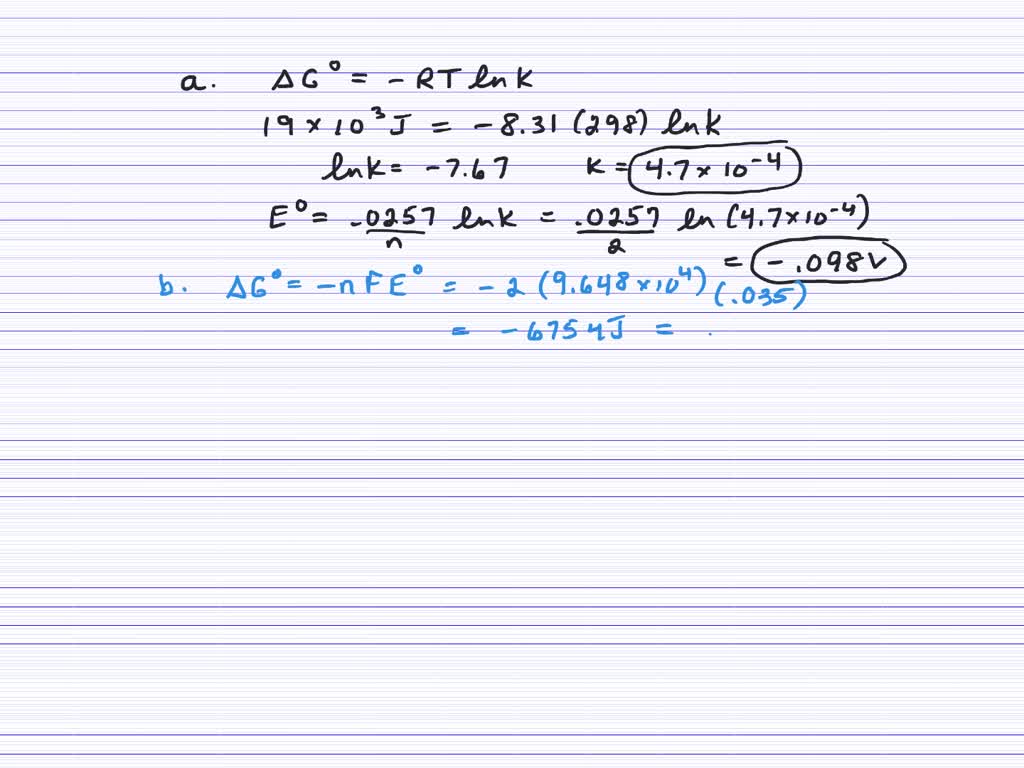 a. ΔG° = - RT ln K
19 × 10³ J = - 8.31 (298) ln K
ln K = - 7.67 K = 4.7 × 10⁻⁴
E° = .0257/n ln K = .0257/2 ln (4.7 × 10⁻⁴)
= - .098 V
b. ΔG° = - n F E° = - 2 (9.648 × 10⁴) (.035)
= - 6754 J = .